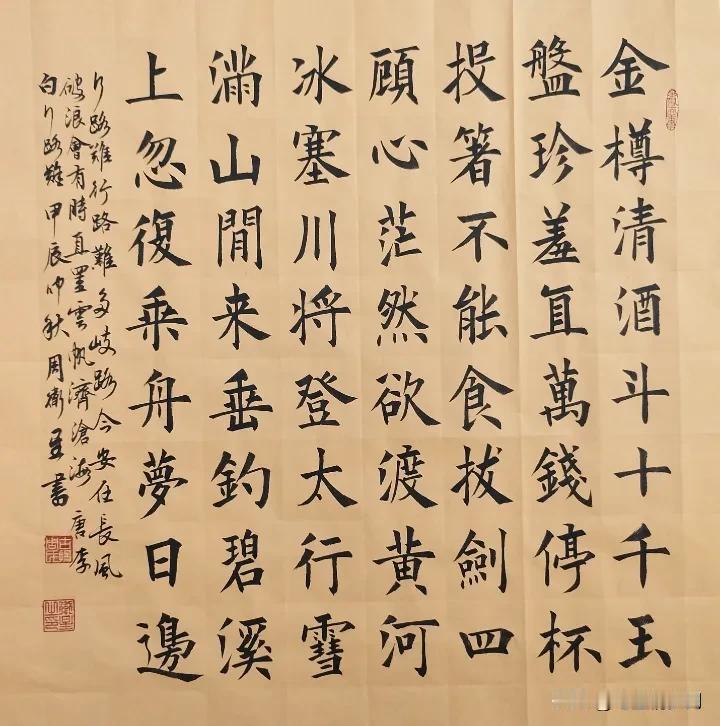 金樽清酒斗十千玉
盤珍羞直萬錢停杯
投箸不能食拔劍四
顧心茫然欲渡黄河
冰塞川將登太行雪
滿山閒来垂釣碧溪
上忽復乘舟夢日邊
行路難行路難多岐路今安在長風
破浪會有時直置雲帆濟滄海唐李
白行路難甲辰仲秋周衛星書